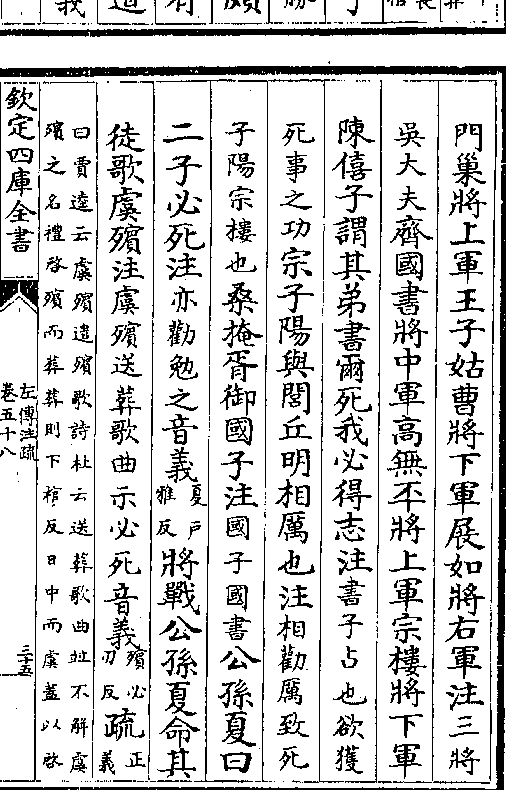 門巢將上軍王子姑曹將下軍展如將右軍注三將
吳大夫齊國書將中軍高無㔻將上軍宗樓將下軍
陳僖子謂其弟書爾死我必得志注書子占也欲獲
死事之功宗子陽與閭丘明相厲也注相勸厲致死
子陽宗樓也桑掩胥御國子注國子國書公孫夏曰
二子必死注亦勸勉之音義夏戶
雅反將戰公孫夏命其
徒歌虞殯注虞殯送葬歌曲示必死音義殯必
刃反疏正
義
曰賈逵云虞殯遣殯歌詩杜云送葬歌曲並不解虞
殯之名禮啓殯而葬葬則下棺反日中而虞蓋以啓
欽定四庫全書
左傳注疏
卷五十八
三十五